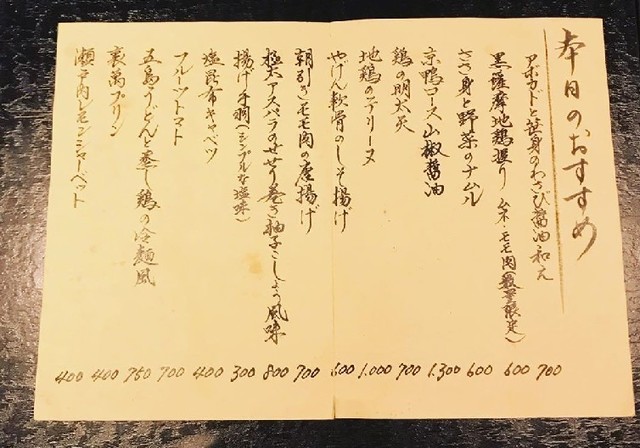 本日のおすすめ
アボカドと笹身のわさび醤油和え 700
黒薩摩地鶏握り ムネ・モモ肉(数量限定) 600
ささ身と野菜のナムル 600
京鴨ロース山椒醤油 1.300
鶏の明太灸 700
地鶏のテリーヌ 1.000
やげん軟骨のしそ揚げ 600
朝引きモモ肉の唐揚げ 700
極太アスパラのせせり巻き柚子こしょう風味 800
揚げ手羽(シンプルな塩味) 300
塩昆布キャベツ 400
フルーツトマト 700
五島うどんと蒸し鶏の冷麺風 750
裏萬プリン 400
瀬戸内レモンシャーベット 400